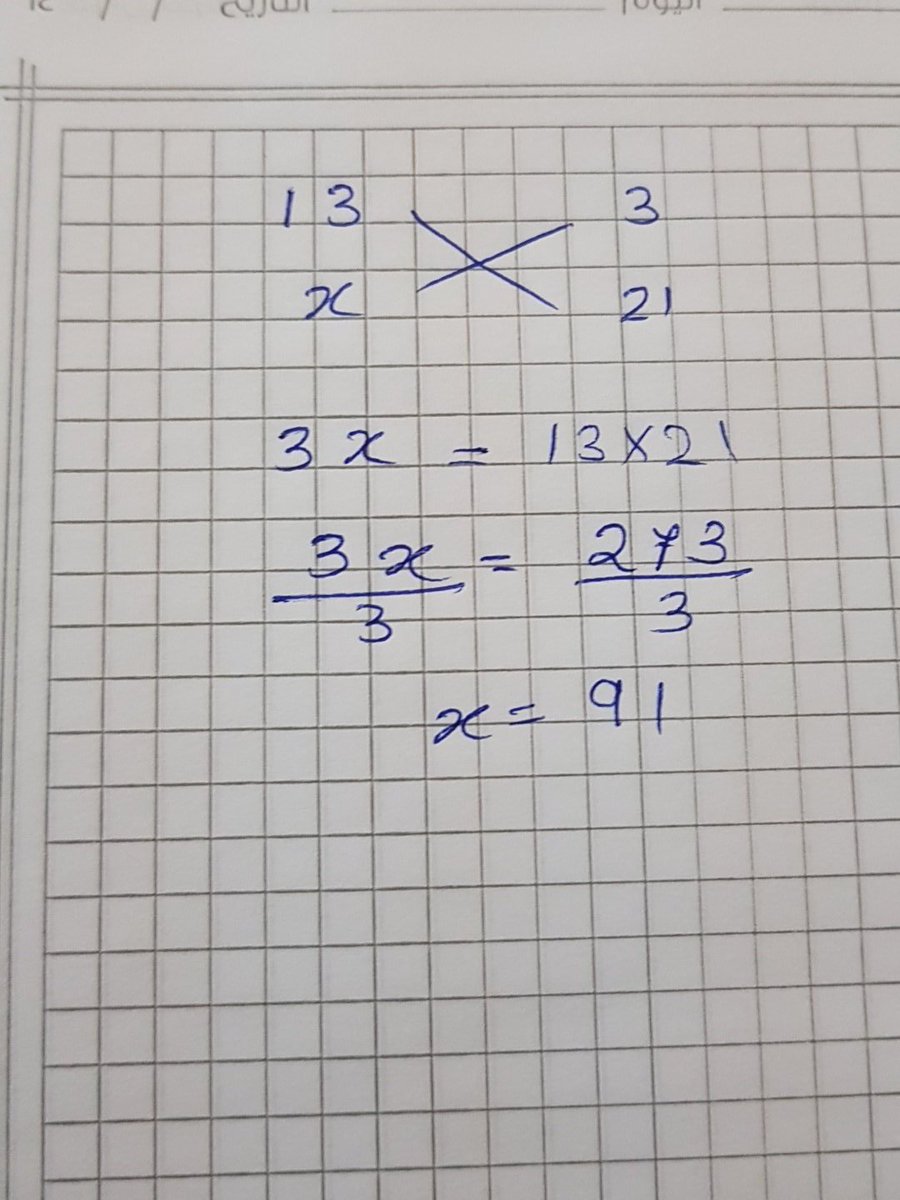 اليوم التاريخ / /
13 3
x 21
3x = 13×21
3x = 273
3 3
x = 91